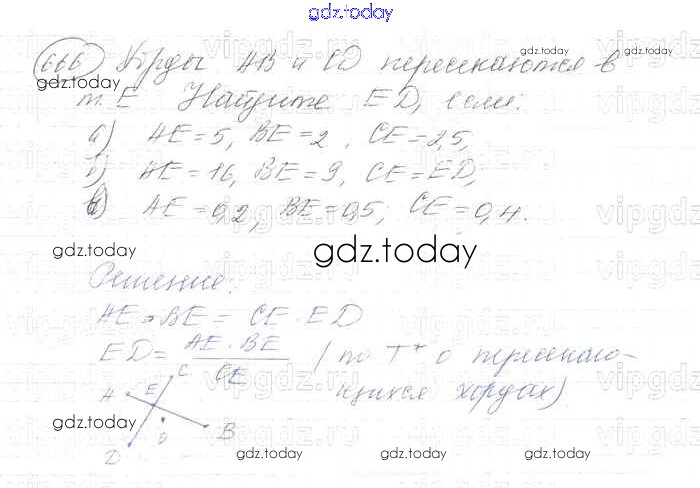 gdz.today
gdz.today
gdz.today
666 Хорды AB и CD пересекаются в
т. E Найдите ED, если:
а) AE=5, BE=2, CE=2,5;
б) AE=16, BE=9, CE=ED;
в) AE=0,2, BE=0,5; CE=0,4.
gdz.today
gdz.today
Решение:
AE·BE = CE·ED
ED = AE·BE / CE (по Т. о пересекаю-
щихся хордах)
A E C
O
D B
gdz.today
gdz.today
gdz.today
gdz.today
vipgdz